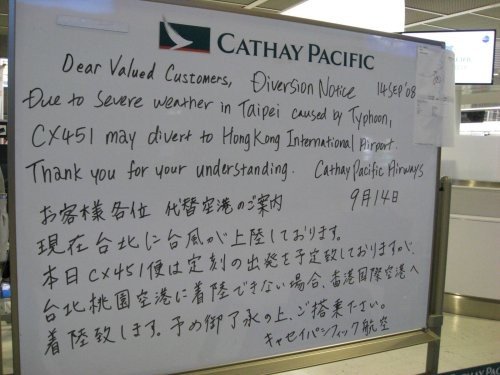 CATHAY PACIFIC
Dear Valued Customers, Diversion Notice 14 SEP '08
Due to severe weather in Taipei caused by Typhoon,
CX451 may divert to Hong Kong International Airport.
Thank you for your understanding. Cathay Pacific Airways
お客様各位 代替空港のご案内 9月14日
現在台北に台風が上陸しております。
本日CX451便は定刻の出発を予定致しておりますが、
台北桃園空港に着陸できない場合、香港国際空港へ
着陸致します。予め御了承の上、ご搭乗下さい。
キャセイパシフィック航空
CATHAY PACIFIC